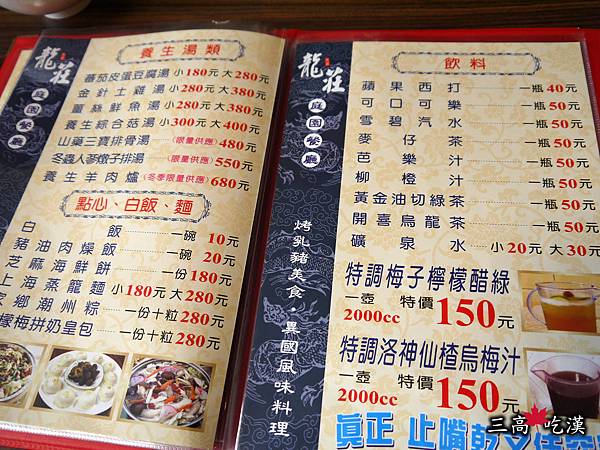 龍莊
庭園餐廳
養生湯類
蕃茄皮蛋豆腐湯 小180元 大280元
金針土雞湯 小280元 大380元
薑絲鮮魚湯 小280元 大380元
養生綜合菇湯 小300元 大400元
山藥三寶排骨湯 (限量供應) 480元
冬蟲人蔘燉子排湯 (限量供應) 550元
養生羊肉爐 (冬季限量供應) 680元
點心、白飯、麵
白飯 一碗 10元
豬油肉燥飯 一碗 20元
芝麻海鮮餅 一份 180元
上海蒸龍麵 小180元 大280元
家鄉潮州粽 一份十粒 280元
檬梅拼奶皇包 一份十粒 280元
龍莊
庭園餐廳
烤乳豬美食・異國風味料理
飲料
蘋果西打 一瓶 40元
可口可樂 一瓶 50元
雪碧汽水 一瓶 50元
麥仔茶 一瓶 50元
芭樂汁 一瓶 50元
柳橙汁 一瓶 50元
黃金油切綠茶 一瓶 50元
開喜烏龍茶 一瓶 50元
礦泉水 小20元 大30元
特調梅子檸檬醋綠
一壺 2000cc 特價 150元
特調洛神仙楂烏梅汁
一壺 2000cc 特價 150元
真正 止嘴乾
三高 吃漢